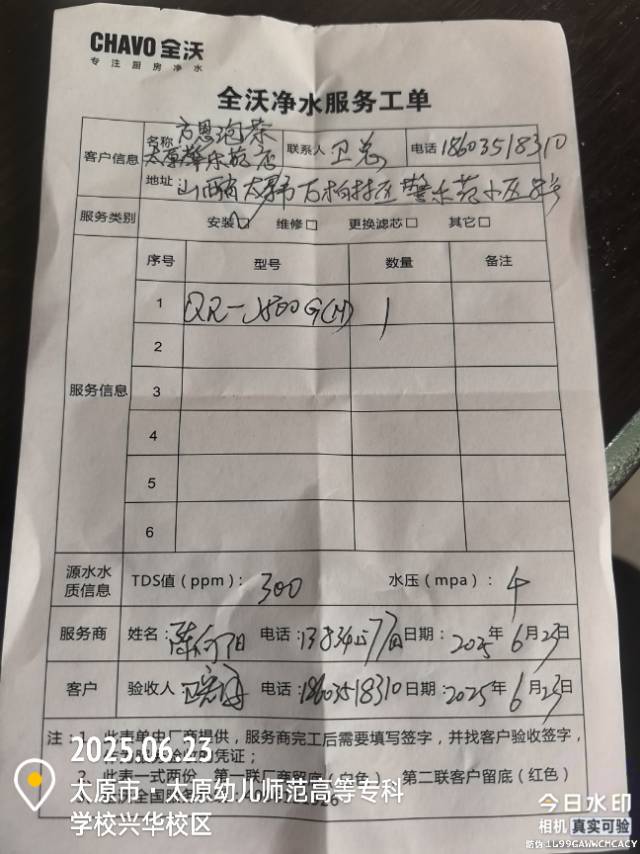 CHAVO 全沃
专注厨房净水
全沃净水服务工单
客户信息 名称 方恩泡茶 太原 乐苑店 联系人 卫总 电话 18603518310
地址 山西省太原市万柏林区 乐苑小区
服务类别 安装☑ 维修□ 更换滤芯□ 其它□
服务信息 序号 型号 数量 备注
1 QR- 800G(M) 1
2
3
4
5
6
源水水质信息 TDS值（ppm）：300 水压（mpa）：4
服务商 姓名： 向阳 电话： 日期：2025年6月23日
客户 验收人： 电话：18603518310 日期：2025年6月23日
注：1、此表单由厂商提供，服务商完工后需要填写签字，并找客户验收签字，
凭证；
2、此表一式两份，第一联厂商留底（白色） 第二联客户留底（红色）
2025.06.23
太原市·太原幼儿师范高等专科
学校兴华校区
今日水印
相机 真实可验
防伪 1L99GAWWCMCACY